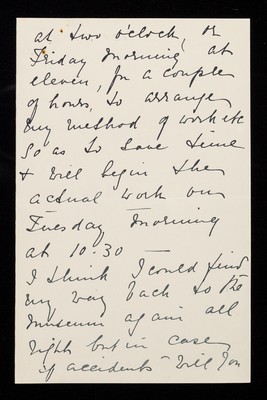 at two o'clock, or
Friday morning at
eleven, for a couple
of hours, to arrange
my method of work etc
so as to save time
& will begin the
actual work on
Tuesday morning
at 10.30 —
I think I could find
my way back to the
museum again all
right but in case
"of accidents" will you